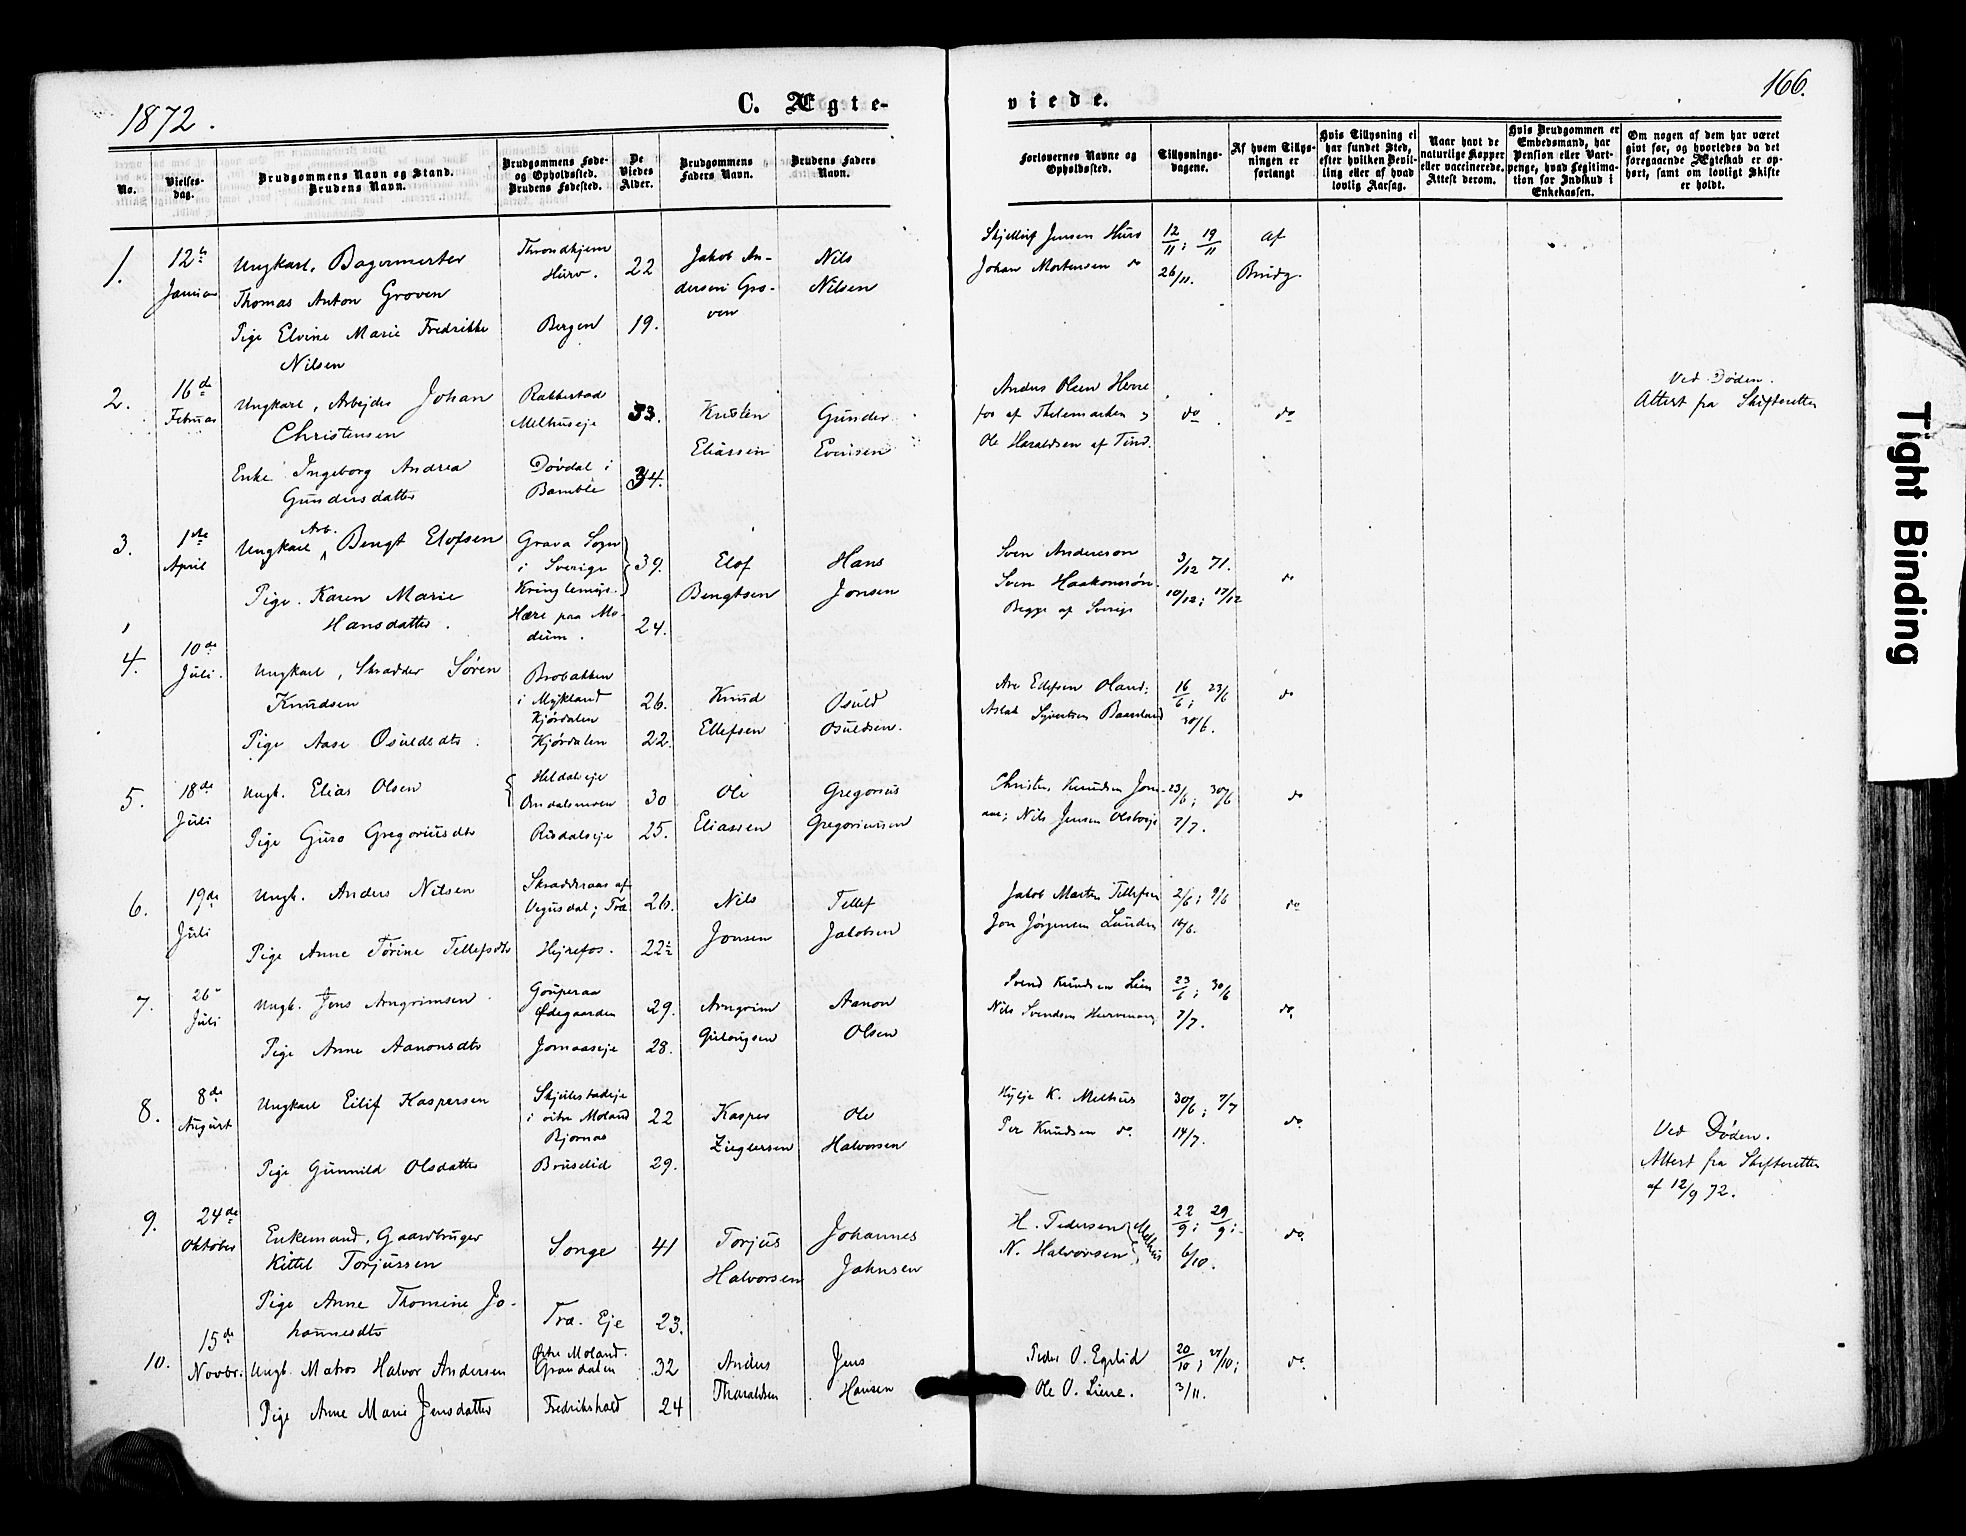 1872.
C. Ægte-
No.
Vielses-
dag.
Brudgommens Navn og Stand.
Brudens Navn.
Brudgommens Føde-
og Opholdssted.
Brudens Fødested.
De
Viedes
Alder.
Brudgommens
Faders Navn.
Brudens Faders
Navn.
1.
12te
Januar
Ungkarl, Bagermester
Thomas Anton Groven
Pige Elvine Marie Fredrikke
Nilsen
Throndhjem
Bergen
22
19.
Jakob An-
dersen Gro-
ven
Nils
Nilsen
2.
16de
Februar
Ungkarl, Arbejder Johan
Christensen
Enke Ingeborg Andrea
Gundersdatter
Rakkestad
Melhuseje
Døvdal i
Bamble
33.
34.
Kristen
Eliassen
Gunder
Evensen
3.
1ste
April
Arb.
Ungkarl Bengt Elofsen
Pige Karen Marie
Hansdatter.
Grava Sogn
i Sverige
Hære paa Mo-
dum.
39.
24.
Elof
Bengtsen
Hans
Jonsen
4.
10de
Juli.
Ungkarl, Skrædder Søren
Knudsen
Pige Aase Osuldsdtr.
Brobakken
i Mykland
Kjørdalen
Kjørdalen
26.
22.
Knud
Ellefsen
Osuld
Osuldsen.
5.
18de
Juli
Ungk. Elias Olsen
Pige Guro Gregoriusdtr
Risdalseje
30
25.
Ole
Eliassen
Gregorius
Gregoriussen
6.
19de
Juli
Ungk. Anders Nilsen
Pige Anne Tørine Tellefsdtr
Skraddraas af
Vegusdal; Træ
Hejrefos.
26.
22
Nils
Jonsen
Tellef
Jakobsen
7.
26
Juli
Ungk. Jens Arngrimsen
Pige Anne Aanonsdtr
Gouperaa
Ødegaarden
Jomaaseje
29.
28.
Arngrim
Aanon
Olsen
8.
8de
August
Ungkarl Eilif Kaspersen
Pige Gunnild Olsdatter
Skjulestadeje
i østre Moland
Bjornas
Bruselid
22
29.
Kasper
Zieglersen
Ole
Halvorsen
9.
24de
Oktober
Enkemand, Gaardbruger
Kittel Torjussen
Pige Anne Thomine Jo-
hannesdtr
Songe
Træ. Eje
41
23.
Torjus
Halvorsen
Johannes
Johnsen
10.
15de
Novbr.
Ungk. Matros Halvor Andersen
Pige Anne Marie Jensdatter
Østre Moland.
Grandalen
Fredrikshald
32
24
Anders
Tharaldsen
Jens
Hansen
166.
viede.
Forlovernes Navne og
Opholdssted.
Tillysnings-
dagene.
Af hvem Tillys-
ningen er
forlangt
Hvis Tillysning ei
har fundet Sted,
efter hvilken Bevil-
ling eller af hvad
lovlig Aarsag.
Naar havt de
naturlige Kopper
eller vaccinerede.
Attest derom.
Hvis Brudgommen er
Embedsmand, har
Pension eller Vart-
penge, hvad Legitima-
tion for Indskud i
Enkekassen.
Om nogen af dem har været
gift før, og hvorledes da det
foregaaende Ægteskab er op-
hørt, samt om lovligt Skifte
er holdt.
Johan Mortensen do
12/11; 19/11
26/11.
Af
Brudg.
Anders Olsen Herre
fos af Thelemarken og
Ole Haraldsen af Tind.
do
do
Ved Døden.
Attest fra Skifteretten
Sven Anderson
Sven Haakonsøn
Begge af Sverige
3/12 71.
10/12; 17/12
do
Are Edefsen Oland;
Aslak Syvertsen Baasland
16/6; 23/6
30/6.
do
Christen Knudsen Jom-
aas; Nils Jensen
23/6; 30/6
7/7.
do
Jakob Marten Tellefsen
Jon Jørgensen Lunden
2/6; 9/6
16/6.
do
Svend Knudsen Lien
Nils Svendsen
23/6; 30/6
7/7.
do.
Hylje K. Melhus
Per Knudsen do.
30/6; 7/7
14/7.
do.
H. Pedersen
N. Halvorsen
Melhus
22/9; 29/9;
6/10.
do.
Ved Døden.
Attest fra Skifteretten
af 12/9 72.
Peder O. Egelid
Ole O. Liene.
20/10; 27/10;
3/11.
do.
Tight Binding